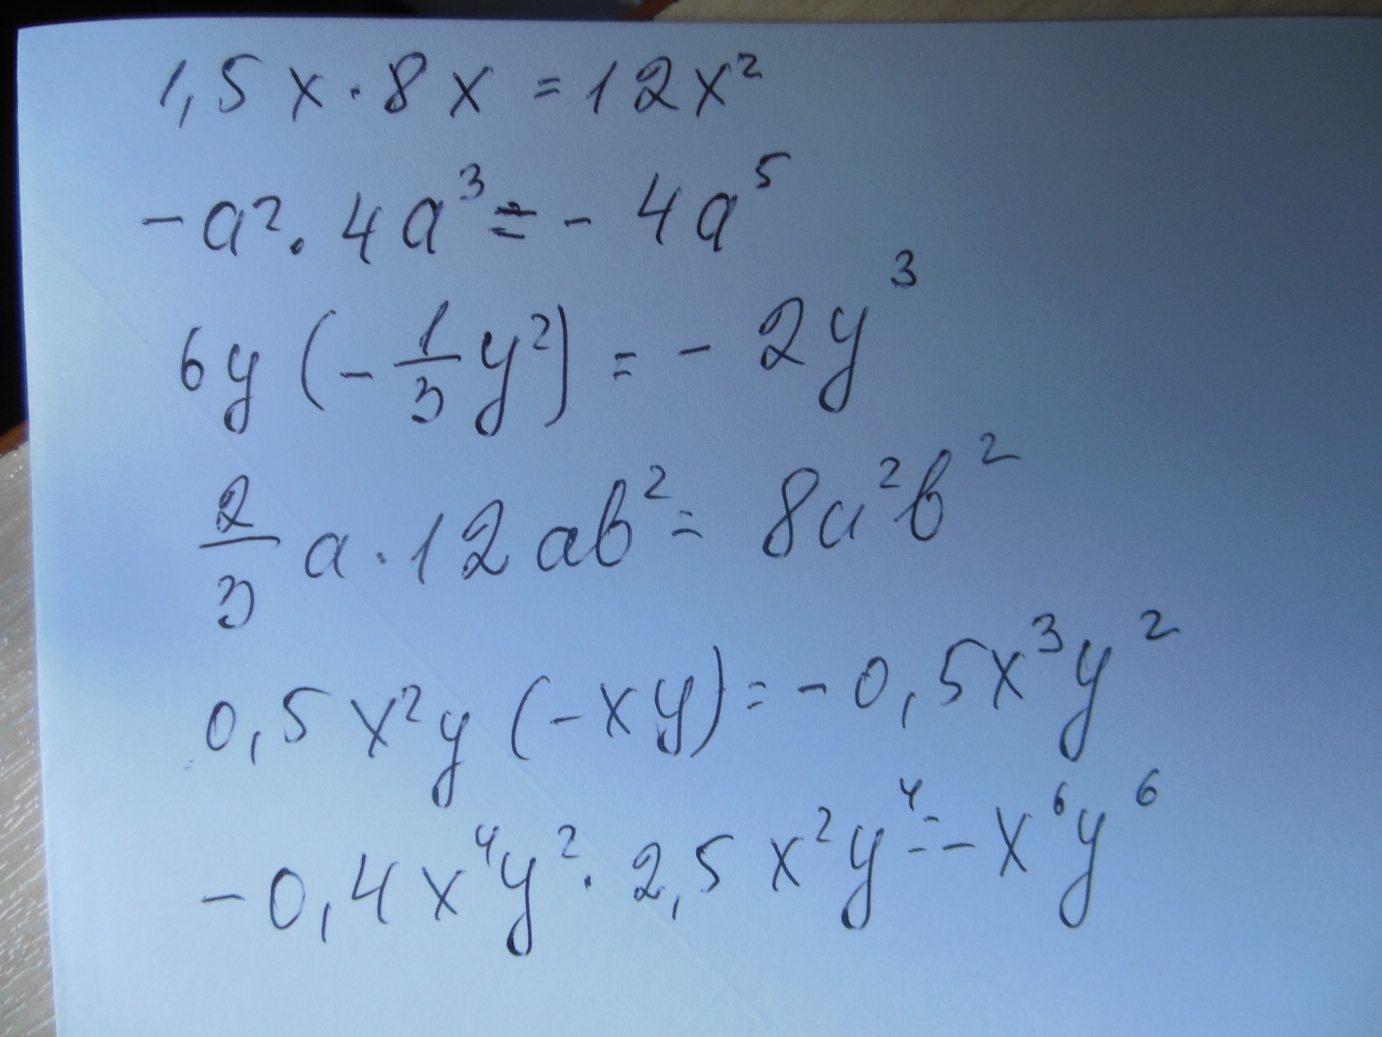 1,5x · 8x = 12x²
-a² · 4a³ = - 4a⁵
6y (- 1/3 y²) = - 2y³
2/3 a · 12ab² = 8a²b²
0,5x²y (-xy) = - 0,5x³y²
- 0,4x⁴y² · 2,5x²y⁴ = - x⁶y⁶